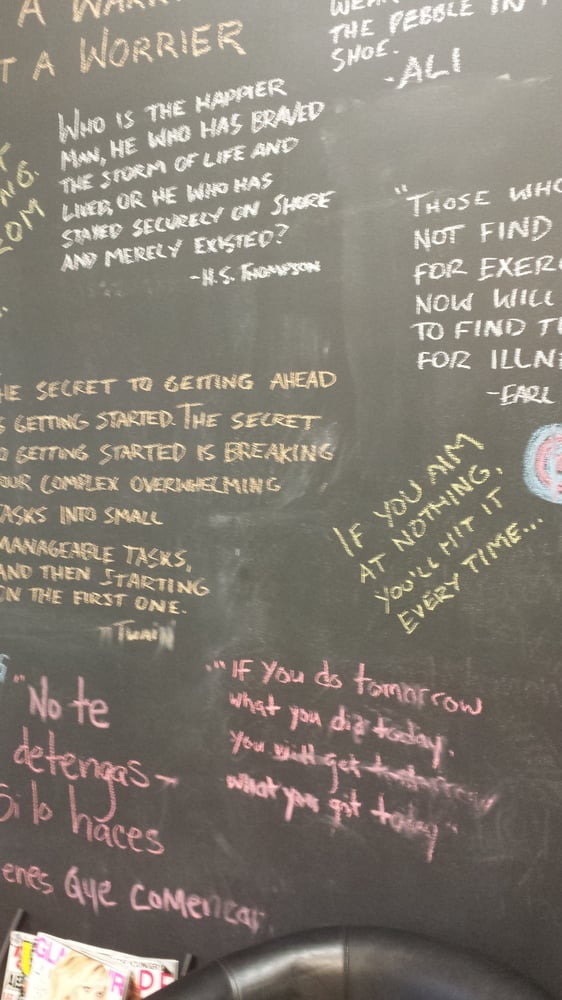 A WARR
T A WORRIER
WEAR
THE PEBBLE IN
SHOE.
-ALI
WHO IS THE HAPPIER
MAN, HE WHO HAS BRAVED
THE STORM OF LIFE AND
LIVED, OR HE WHO HAS
STAYED SECURELY ON SHORE
AND MERELY EXISTED?
-H.S. THOMPSON
NG.
OM
"THOSE WHO
NOT FIND
FOR EXER
NOW WILL
TO FIND TI
FOR ILLN
-EARL
HE SECRET TO GETTING AHEAD
S GETTING STARTED. THE SECRET
O GETTING STARTED IS BREAKING
OUR COMPLEX OVERWHELMING
TASKS INTO SMALL
MANAGEABLE TASKS,
AND THEN STARTING
ON THE FIRST ONE.
TWAIN
IF YOU AIM
AT NOTHING,
YOU'LL HIT IT
EVERY TIME...
"No te
detengas-
Si lo haces
enes que comenzar.
"IF You do tomorrow
what you did today.
You will get tomorrow
what you got today"
GL
RADE